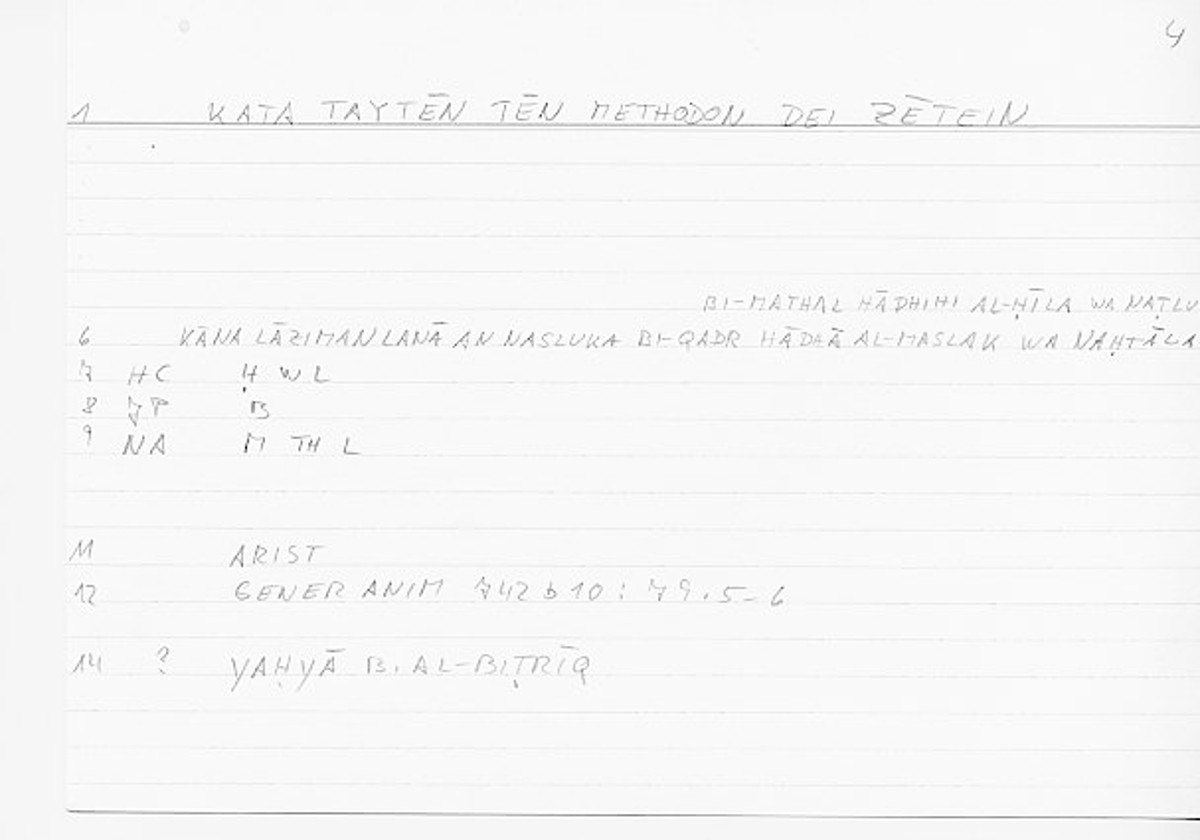 4
1 KATA TAYTĒN TĒN METHODON DEI ZĒTEIN
BI-MATHAL HĀDHIHI AL-ḤĪLA WA NAṬLU
6 KĀNA LĀZIMAN LANĀ AN NASLUKA BI-QADR HĀDHĀ AL-MASLAK WA NAḤTĀLA
7 HC Ḥ W L
8 JP B
9 NA M TH L
11 ARIST
12 GENER ANIM 742 b 10 : 79.5-6
14 ? YAḤYĀ B. AL-BIṬRĪQ